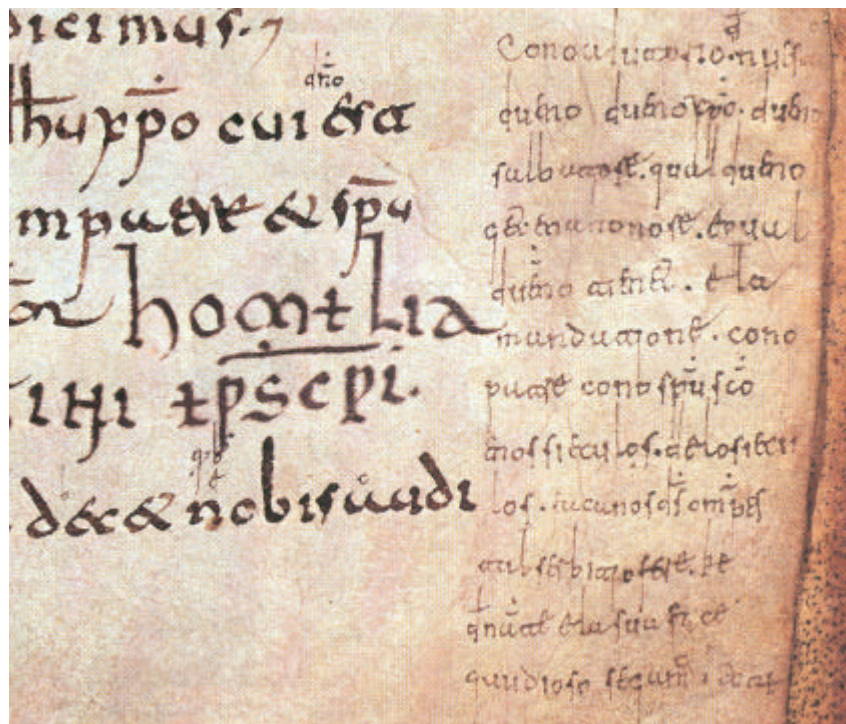 dicimus.
qno
ihu xpo cui est a
m patre & spu
homelia
epscpi.
decet nobis audi
Cono aiutorio nuestro
dueno dueno xpo. dueno
salbatore. qual dueno
get ena honore. equal
dueno tienet. ela
mandatione. cono
patre cono spu sco
enos sieculos. delosiecu
los. facanos ds omps
tal serbitio fere. ke
denante ela sua face
gaudioso segamus.